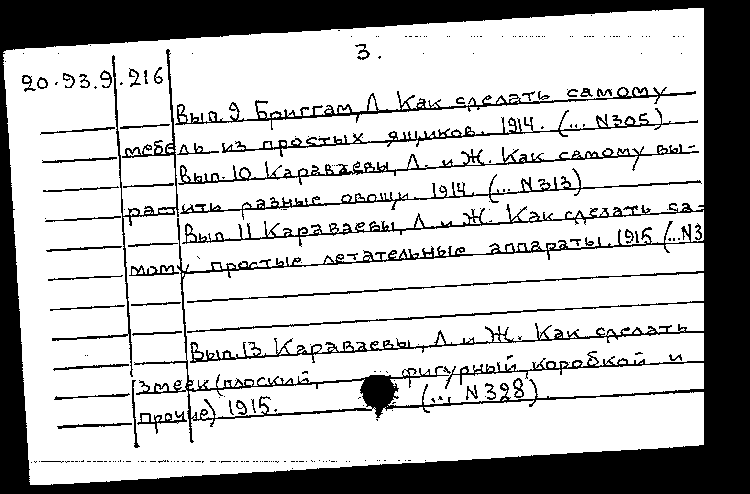 3.
20.93.9.216
Вып. 9 Бриггам, Л. Как сделать самому
мебель из простых ящиков. 1914. (... N305).
Вып. 10 Караваевы, Л. и Ж. Как самому вы-
растить разные овощи. 1914. (... N313)
Вып. 11 Караваевы, Л. и Ж. Как сделать са-
мому простые летательные аппараты. 1915 (...N3
Вып. 13. Караваевы, Л. и Ж. Как сделать
змеек (плоский, фигурный, коробкой и
прочие) 1915. (... N328).